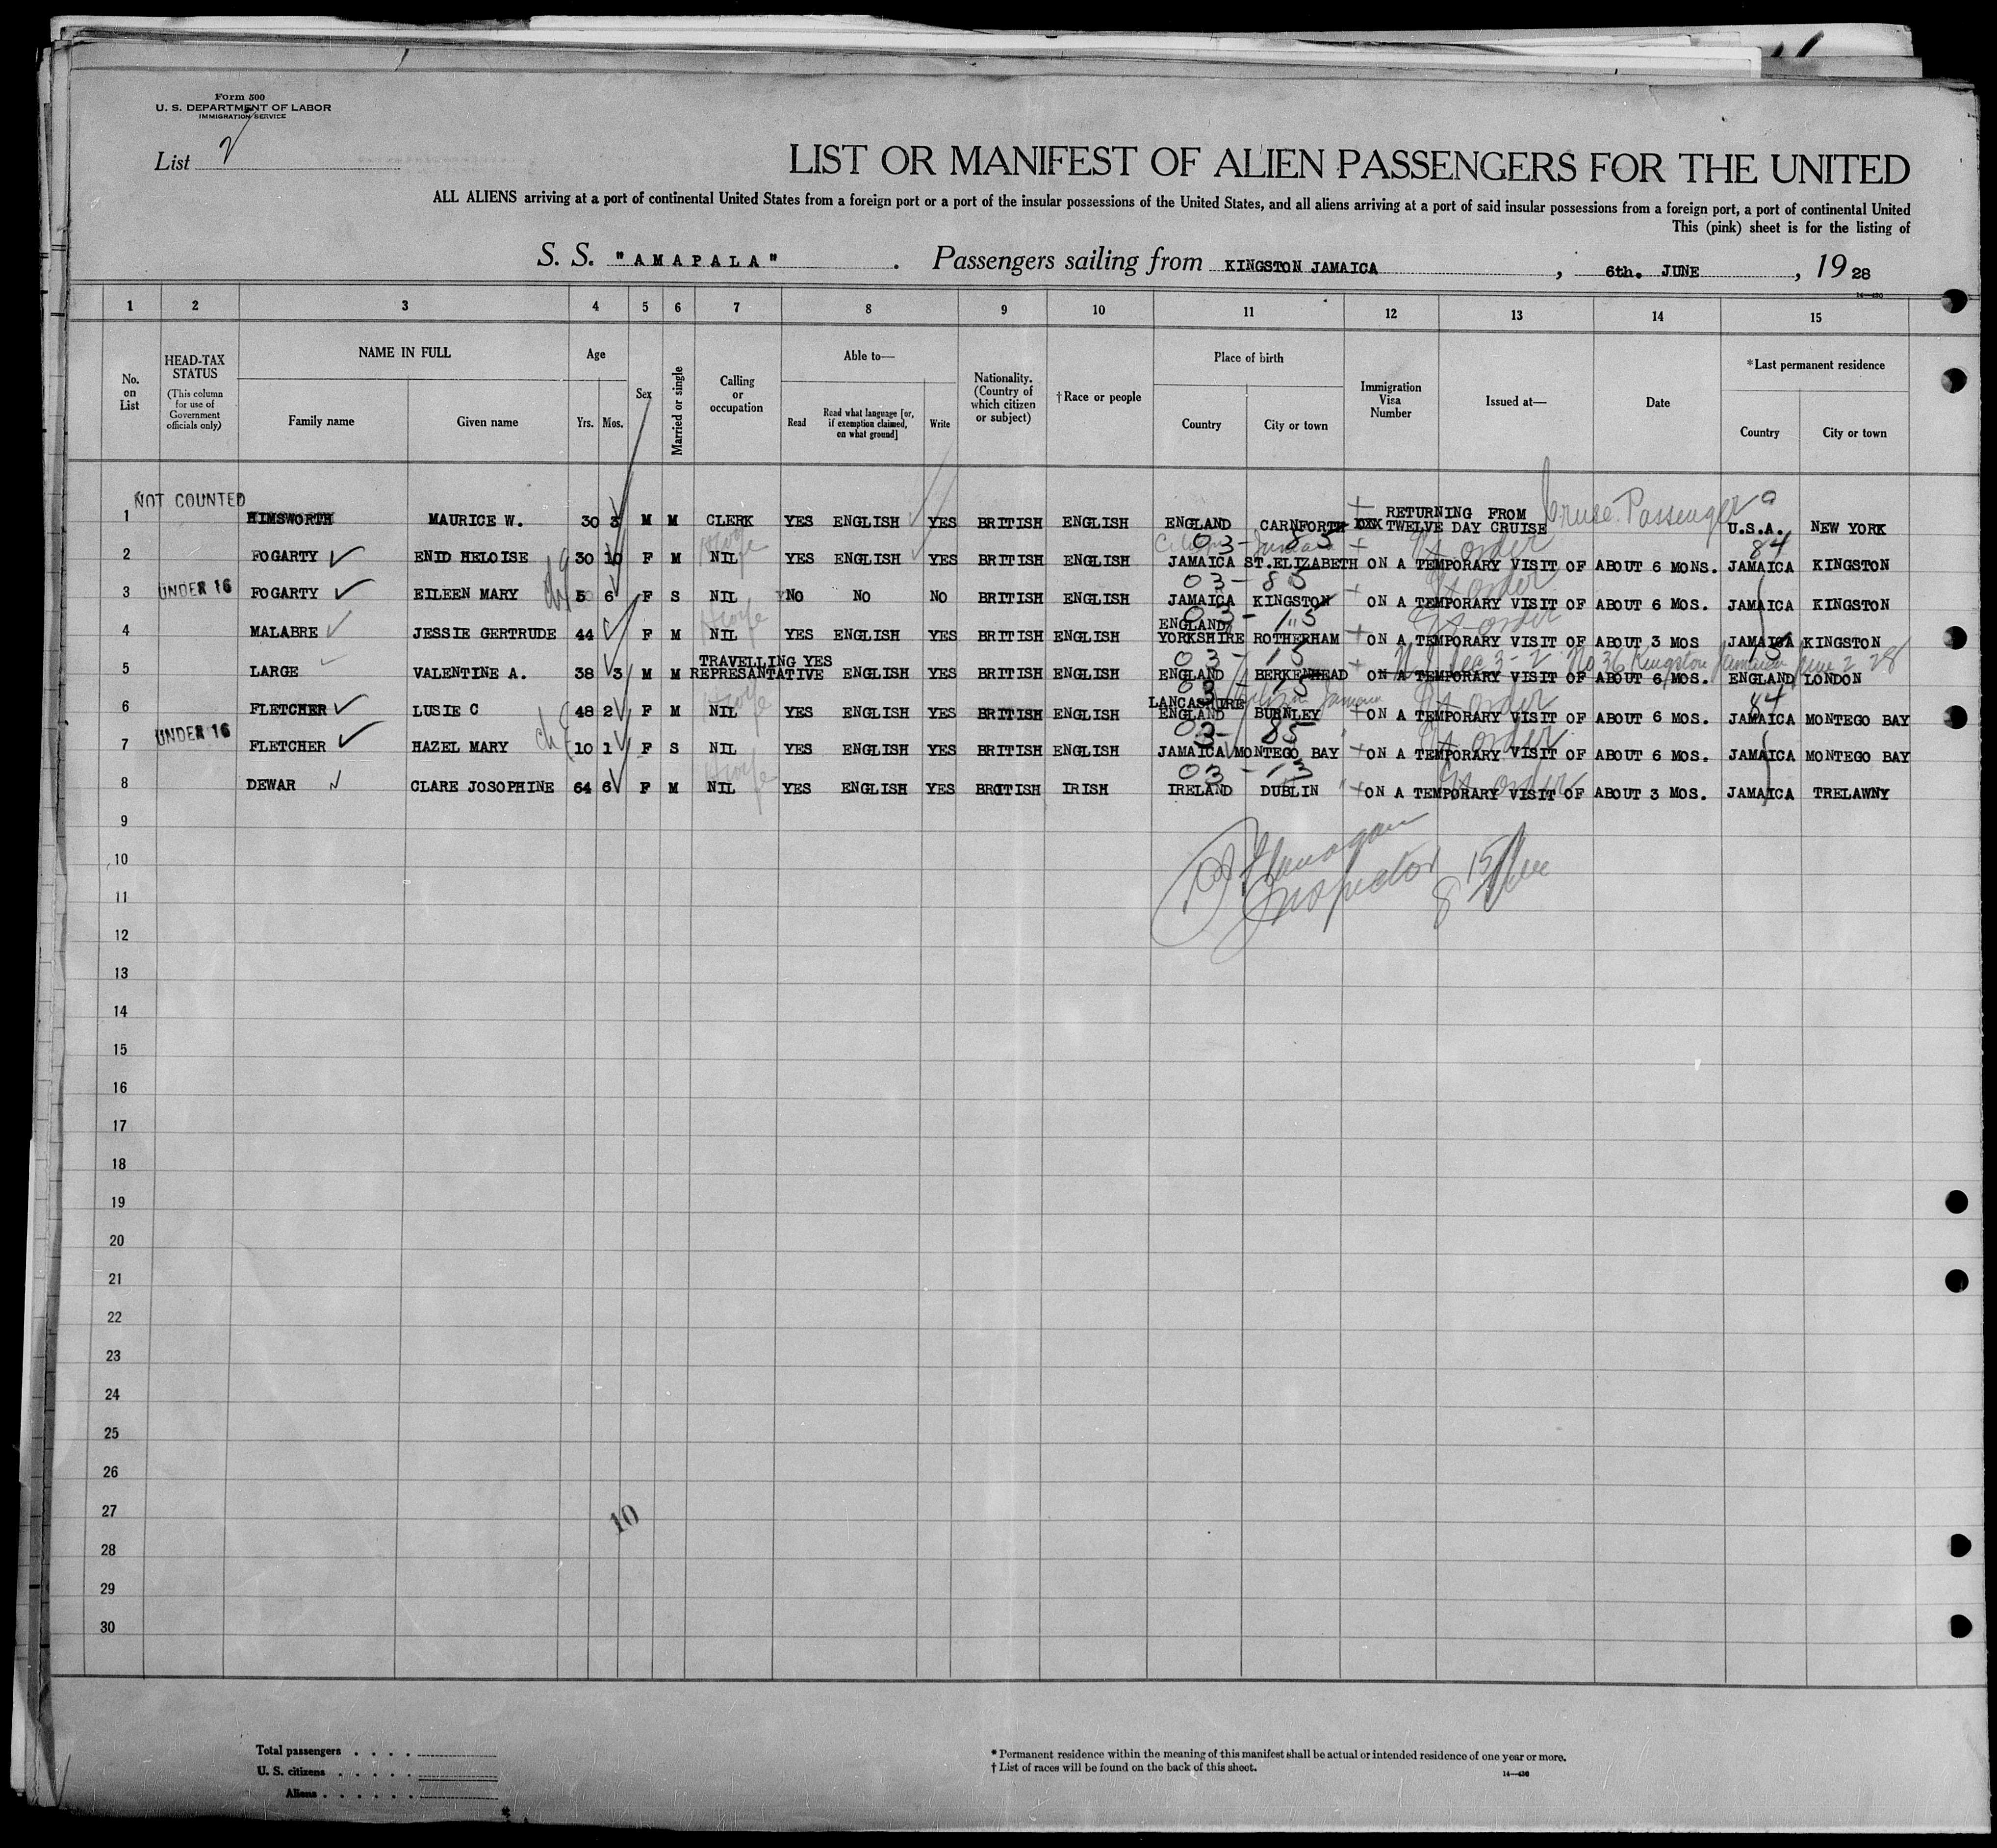 Form 500
U. S. DEPARTMENT OF LABOR
IMMIGRATION SERVICE
List 2
LIST OR MANIFEST OF ALIEN PASSENGERS FOR THE UNITED
ALL ALIENS arriving at a port of continental United States from a foreign port or a port of the insular possessions of the United States, and all aliens arriving at a port of said insular possessions from a foreign port, a port of continental United
This (pink) sheet is for the listing of
S. S. "AMAPALA" . Passengers sailing from KINGSTON JAMAICA , 6th. JUNE , 19 28
14—430
1 2 3 4 5 6 7 8 9 10 11 12 13 14 15
No. on List
HEAD-TAX STATUS (This column for use of Government officials only)
NAME IN FULL
Family name
Given name
Age
Yrs. Mos.
Sex
Married or single
Calling or occupation
Able to—
Read
Read what language [or, if exemption claimed, on what ground]
Write
Nationality. (Country of which citizen or subject)
†Race or people
Place of birth
Country
City or town
Immigration Visa Number
Issued at—
Date
*Last permanent residence
Country
City or town
NOT COUNTED
1 HIMSWORTH MAURICE W. 30 3 M M CLERK YES ENGLISH YES BRITISH ENGLISH ENGLAND CARNFORTH XXX RETURNING FROM TWELVE DAY CRUISE Cruise Passenger U.S.A. NEW YORK
03 - 85 84
2 FOGARTY ENID HELOISE 30 10 F M NIL YES ENGLISH YES BRITISH ENGLISH JAMAICA ST.ELIZABETH ON A TEMPORARY VISIT OF ABOUT 6 MONS. JAMAICA KINGSTON
03 - 85
UNDER 16
3 FOGARTY EILEEN MARY 5 6 F S NIL NO NO NO BRITISH ENGLISH JAMAICA KINGSTON ON A TEMPORARY VISIT OF ABOUT 6 MOS. JAMAICA KINGSTON
03 - 15
4 MALABRE JESSIE GERTRUDE 44 F M NIL YES ENGLISH YES BRITISH ENGLISH ENGLAND YORKSHIRE ROTHERHAM ON A TEMPORARY VISIT OF ABOUT 3 MOS JAMAICA KINGSTON
03 - 15 Sec 3-2 No 36 Kingston Jamaica June 2 28
5 LARGE VALENTINE A. 38 3 M M TRAVELLING REPRESANTATIVE YES ENGLISH YES BRITISH ENGLISH ENGLAND BERKENHEAD ON A TEMPORARY VISIT OF ABOUT 6 MOS. ENGLAND LONDON
03 15 Jamaica 84
6 FLETCHER LUSIE C 48 2 F M NIL YES ENGLISH YES BRITISH ENGLISH LANCASHIRE ENGLAND BURNLEY ON A TEMPORARY VISIT OF ABOUT 6 MOS. JAMAICA MONTEGO BAY
03 - 85
UNDER 16
7 FLETCHER HAZEL MARY 10 1 F S NIL YES ENGLISH YES BRITISH ENGLISH JAMAICA MONTEGO BAY ON A TEMPORARY VISIT OF ABOUT 6 MOS. JAMAICA MONTEGO BAY
03 - 13
8 DEWAR CLARE JOSOPHINE 64 6 F M NIL YES ENGLISH YES BRITISH IRISH IRELAND DUBLIN ON A TEMPORARY VISIT OF ABOUT 3 MOS. JAMAICA TRELAWNY
9
10
Flanagan
Inspector
11
12
13
14
15
16
17
18
19
20
21
22
23
24
25
26
27
10
28
29
30
Total passengers . . . .
U. S. citizens . . . . .
Aliens . . . . . .
* Permanent residence within the meaning of this manifest shall be actual or intended residence of one year or more.
† List of races will be found on the back of this sheet.
14—430